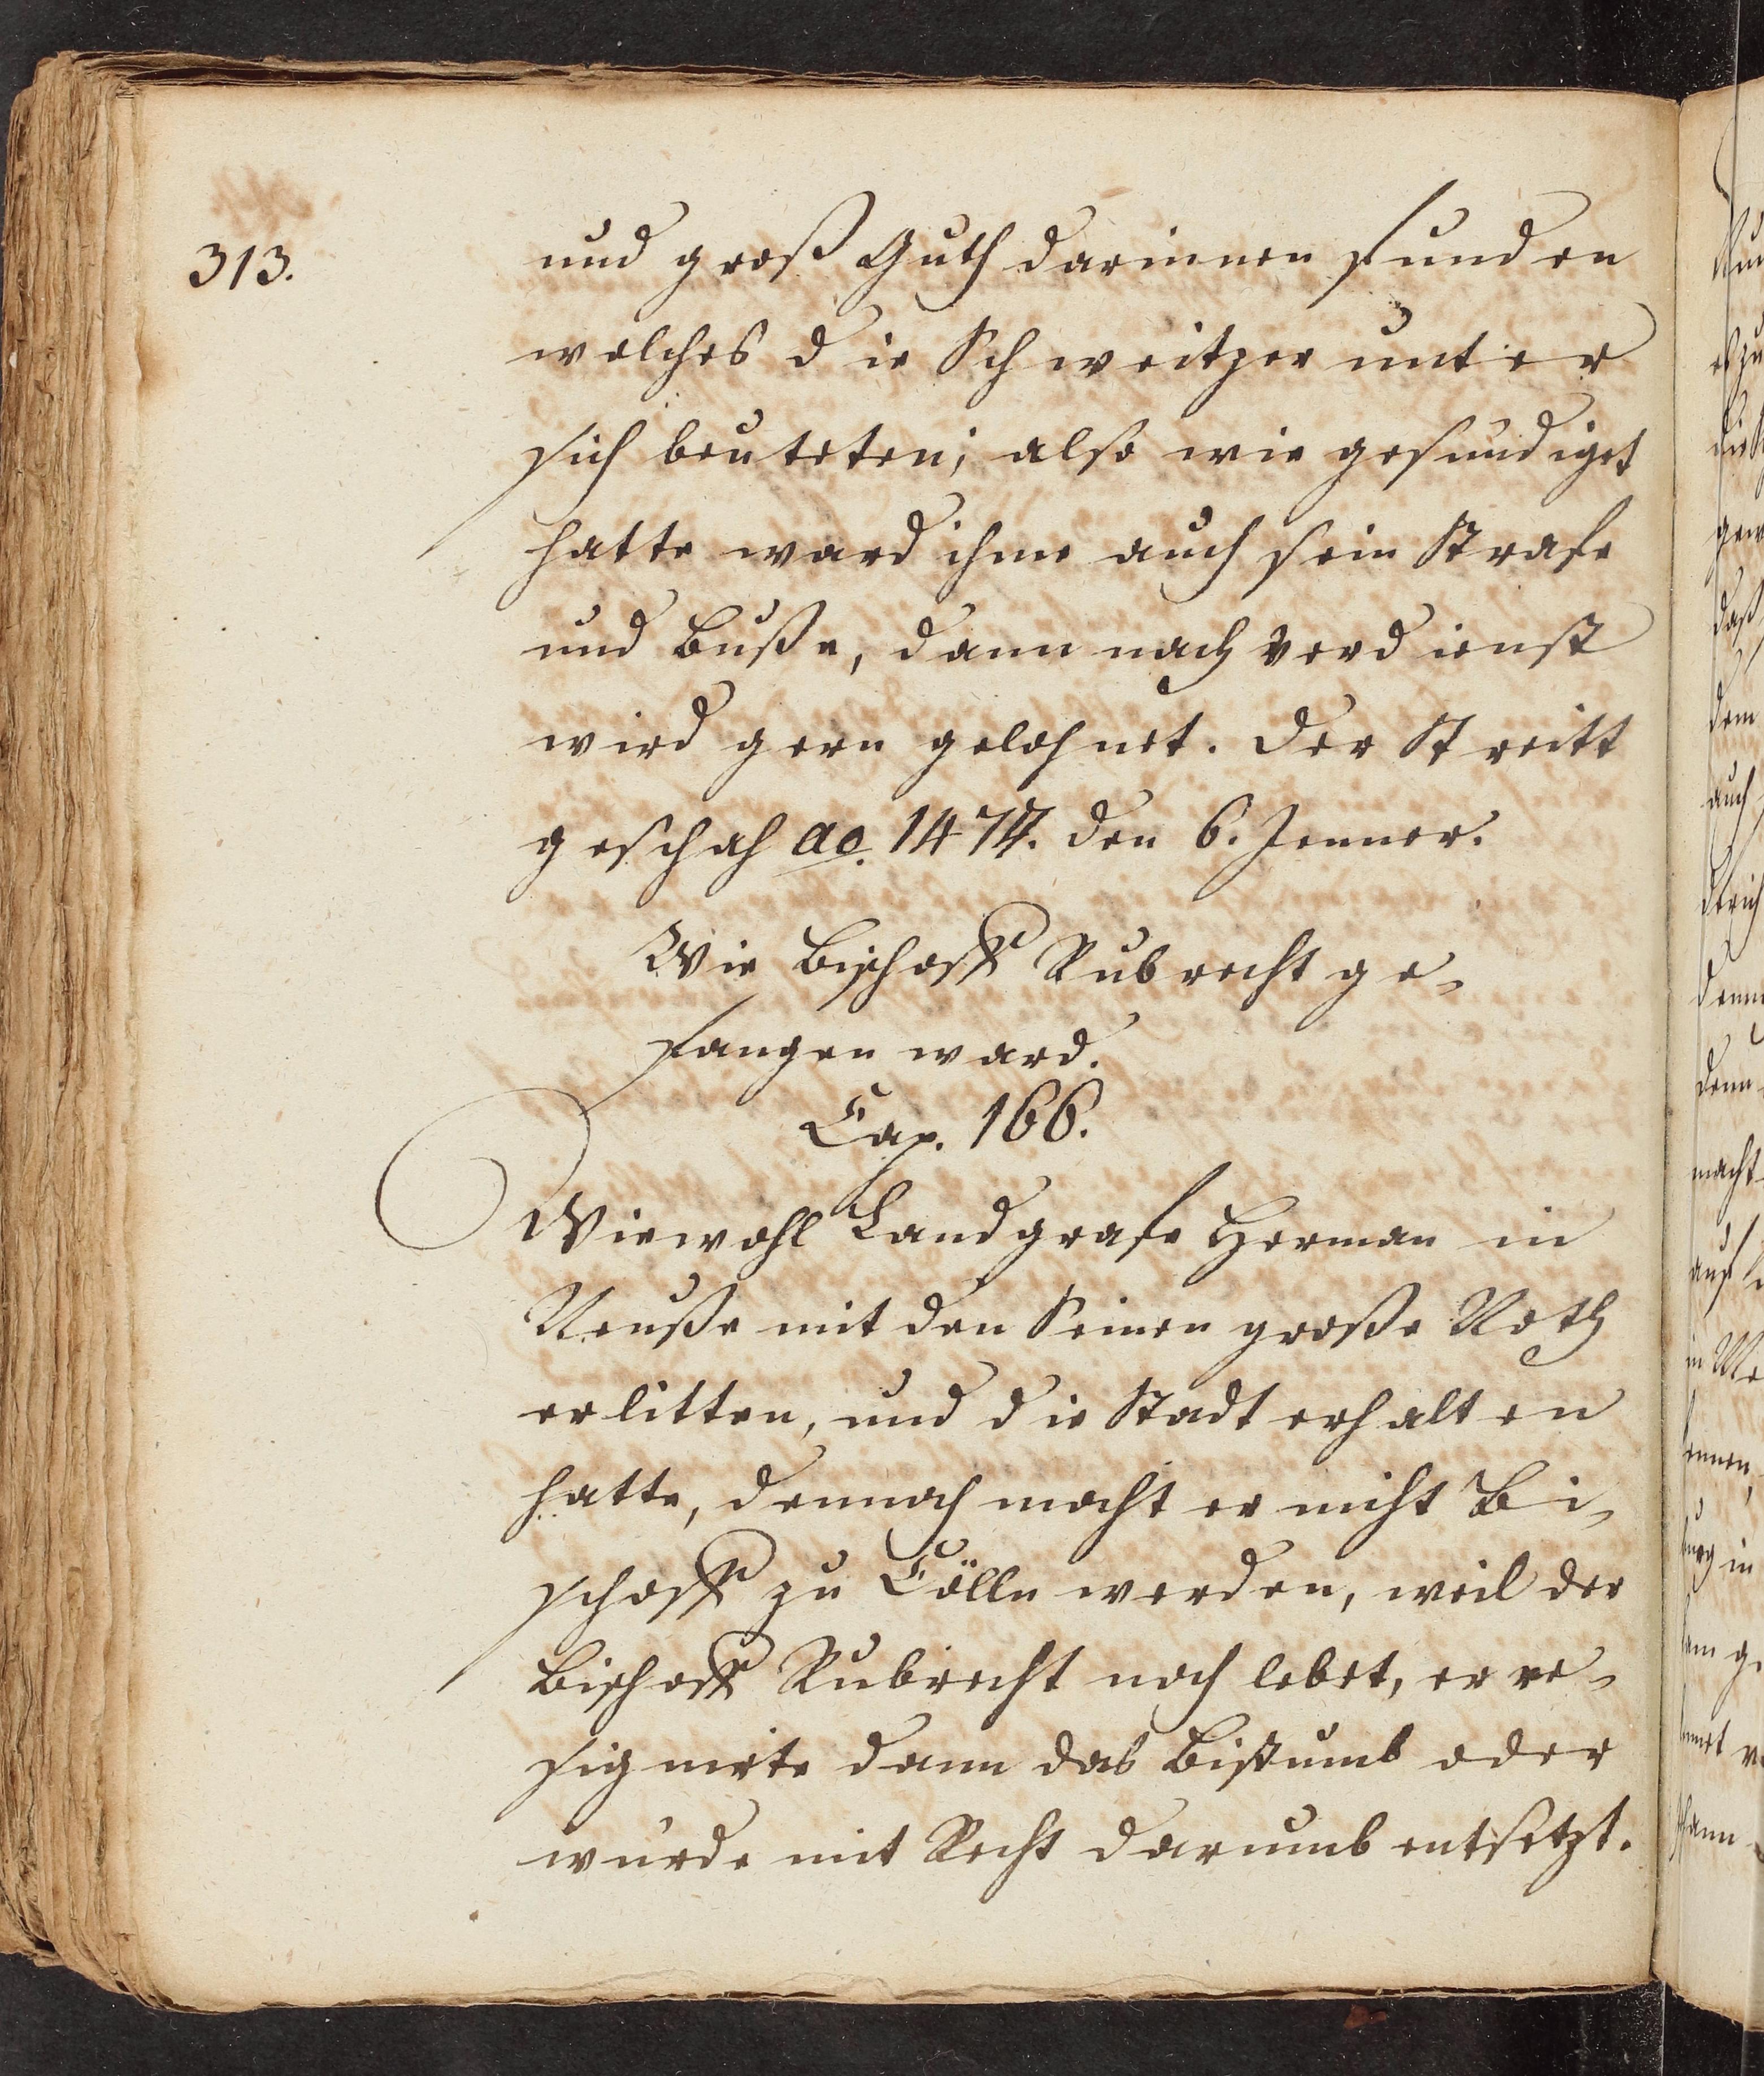 313.
und groß Guth darinnen funden
welches die Schweitzer unter
sich beuteten; also wie gesundiget
hatte ward ihme auch sein Strafe
und Buße, dann nach verdienst
wird gern gelohnet. Der Streitt
geschah ao. 1477. den 6. Jenner.
Wie Bischoff Rubrecht ge-
fangen ward.
Cap. 166.
Wiewohl Landgrafe Herman in
Neuße mit den Seinen große Noth
erlitten, und die Stadt erhalten
hatte, dennoch mocht er nicht Bi-
schoff zu Cölln werden, weil der
Bischoff Rubrecht noch lebet, er re-
signirte dann das Bistumb oder
wurde mit Recht darumb entsetzt.